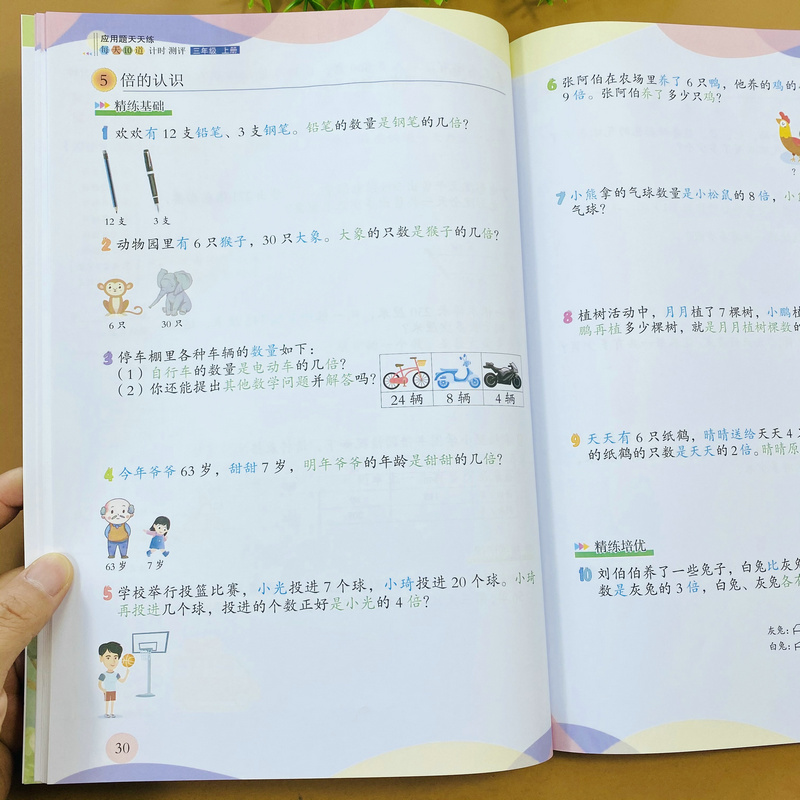 应用题天天练
每天10道 计时 测评 三年级 上册
5 倍的认识
精练基础
1 欢欢有 12 支铅笔、3 支钢笔。铅笔的数量是钢笔的几倍?
12 支 3 支
2 动物园里有 6 只猴子,30 只大象。大象的只数是猴子的几倍?
6 只 30 只
3 停车棚里各种车辆的数量如下:
(1)自行车的数量是电动车的几倍?
(2)你还能提出其他数学问题并解答吗?
24 辆 8 辆 4 辆
4 今年爷爷 63 岁,甜甜 7 岁,明年爷爷的年龄是甜甜的几倍?
63 岁 7 岁
5 学校举行投篮比赛,小光投进 7 个球,小琦投进 20 个球。小琦
再投进几个球,投进的个数正好是小光的 4 倍?
30
6 张阿伯在农场里养了 6 只鸭,他养的鸡的
9 倍。张阿伯养了多少只鸡?
?
7 小熊拿的气球数量是小松鼠的 8 倍,小
气球?
8 植树活动中,月月植了 7 棵树,小鹏
鹏再植多少棵树,就是月月植树棵数的
9 天天有 6 只纸鹤,晴晴送给天天 4
的纸鹤的只数是天天的 2 倍。晴晴原
精练培优
10 刘伯伯养了一些兔子,白兔比灰
数是灰兔的 3 倍,白兔、灰兔各
灰兔:
白兔: